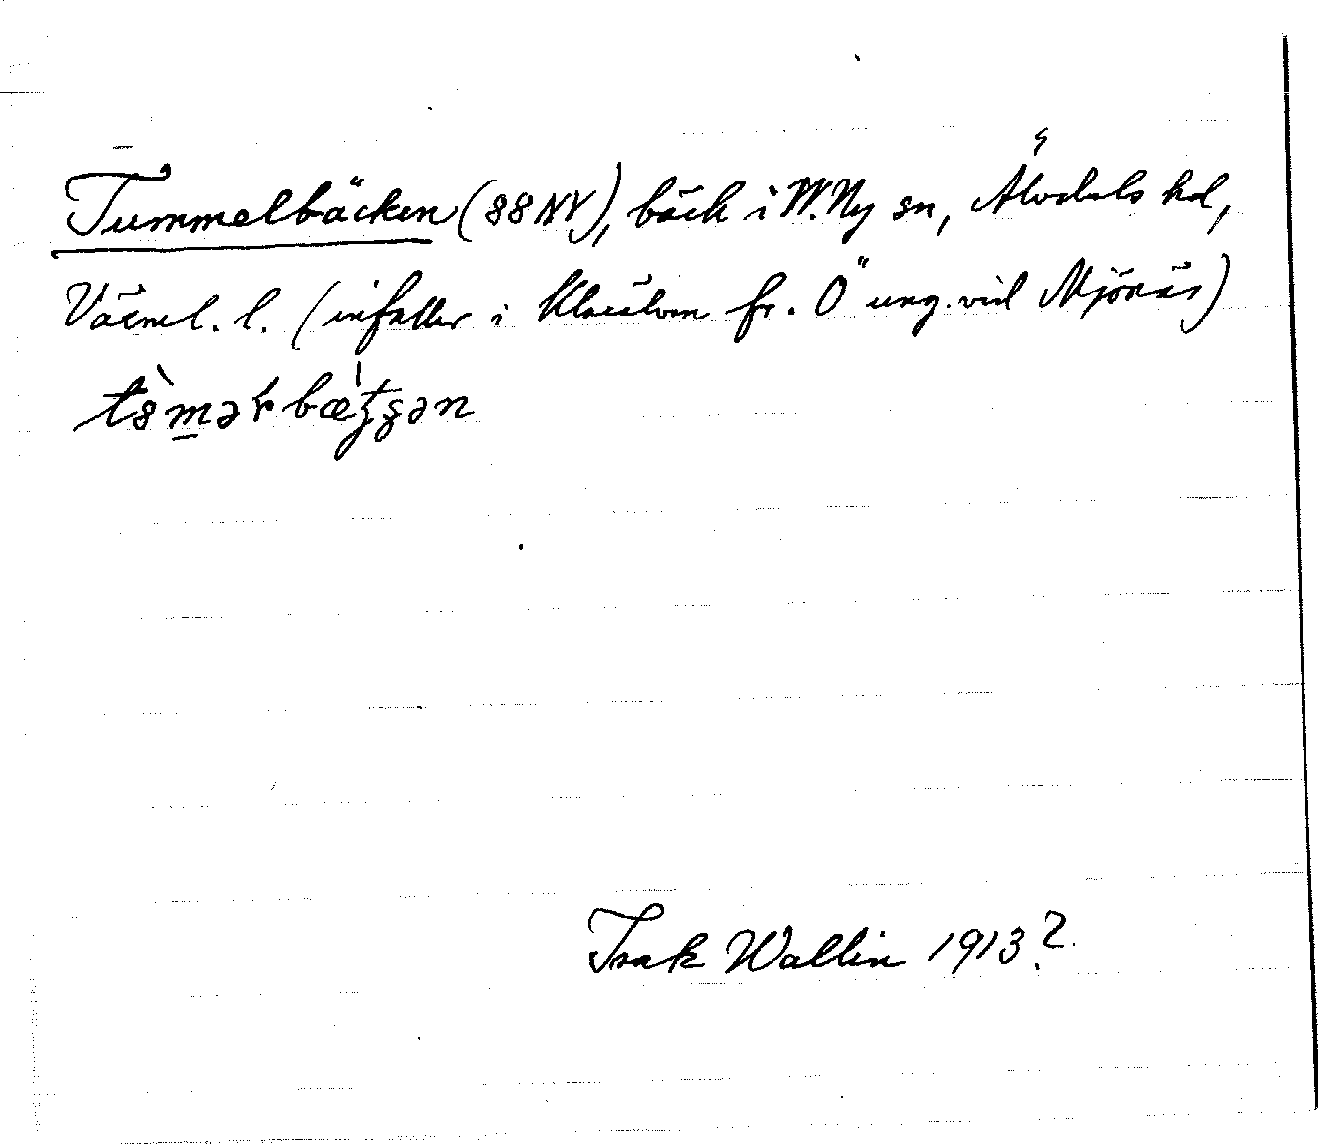 Tummelbäcken (88 NV), bäck i V. Ny sn, Älvdals hd,
Värml. l. (infaller i Klarälven fr. Ö ung. vid Mjönäs)
Isak Wallin 1913?